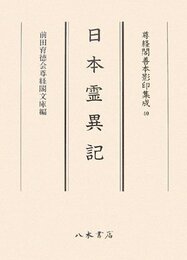 尊経閣善本影印集成 40
日本霊異記
前田育徳会尊経閣文庫編
八木書店